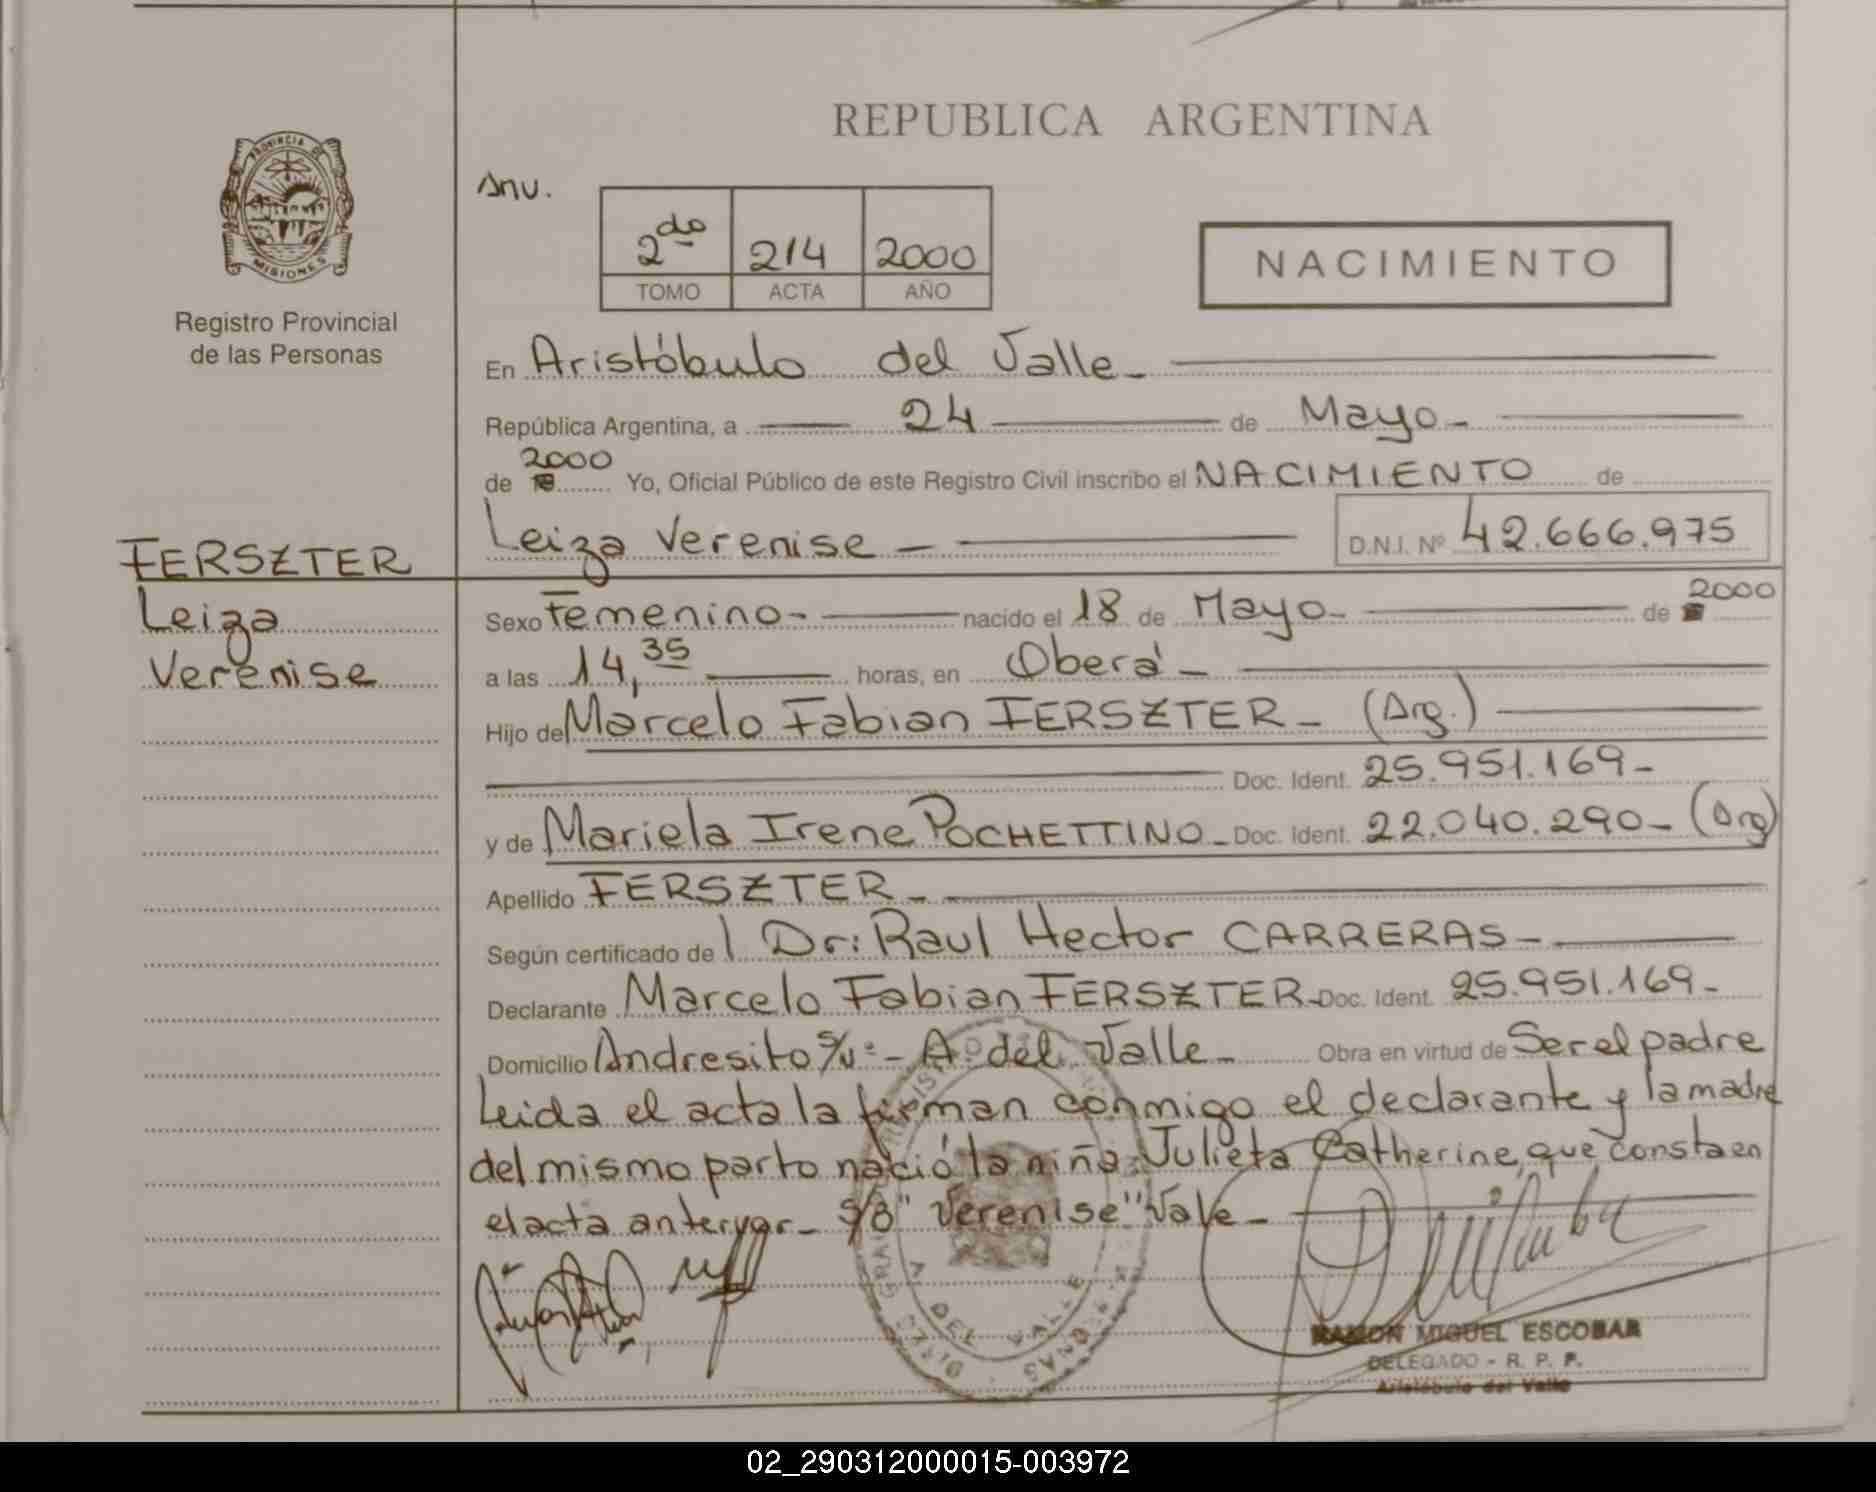 REPUBLICA ARGENTINA
PROVINCIA DE
MISIONES
Registro Provincial
de las Personas
Anv.
2do 214 2000
TOMO ACTA AÑO
NACIMIENTO
En Aristóbulo del Valle_
República Argentina, a 24 de Mayo_
2000
de Yo, Oficial Público de este Registro Civil inscribo el NACIMIENTO de
Leiza Verenise _ D.N.I. Nº 42.666.975
FERSZTER
Leiza
Verenise
Sexo Femenino_ nacido el 18 de Mayo_ de 2000
a las 14,35 horas, en Oberá_
Hijo de Marcelo Fabian FERSZTER_ (Arg.)
Doc. Ident. 25.951.169_
y de Mariela Irene POCHETTINO_ Doc. Ident. 22.040.290_ (Arg)
Apellido FERSZTER_
Según certificado de Dr: Raul Hector CARRERAS_
Declarante Marcelo Fabian FERSZTER_ Doc. Ident. 25.951.169_
Domicilio Andresito S/Nº_ A. del Valle_ Obra en virtud de Ser el padre
Leida el acta la firman conmigo el declarante y la madre
del mismo parto nació la niña: Julieta Catherine, que consta en
el acta anteryor_ S/B "Verenise" Vale_
A. DEL VALLE
RAMON MIGUEL ESCOBAR
DELEGADO - R. P. P.
Aristóbulo del Valle
02_290312000015-003972